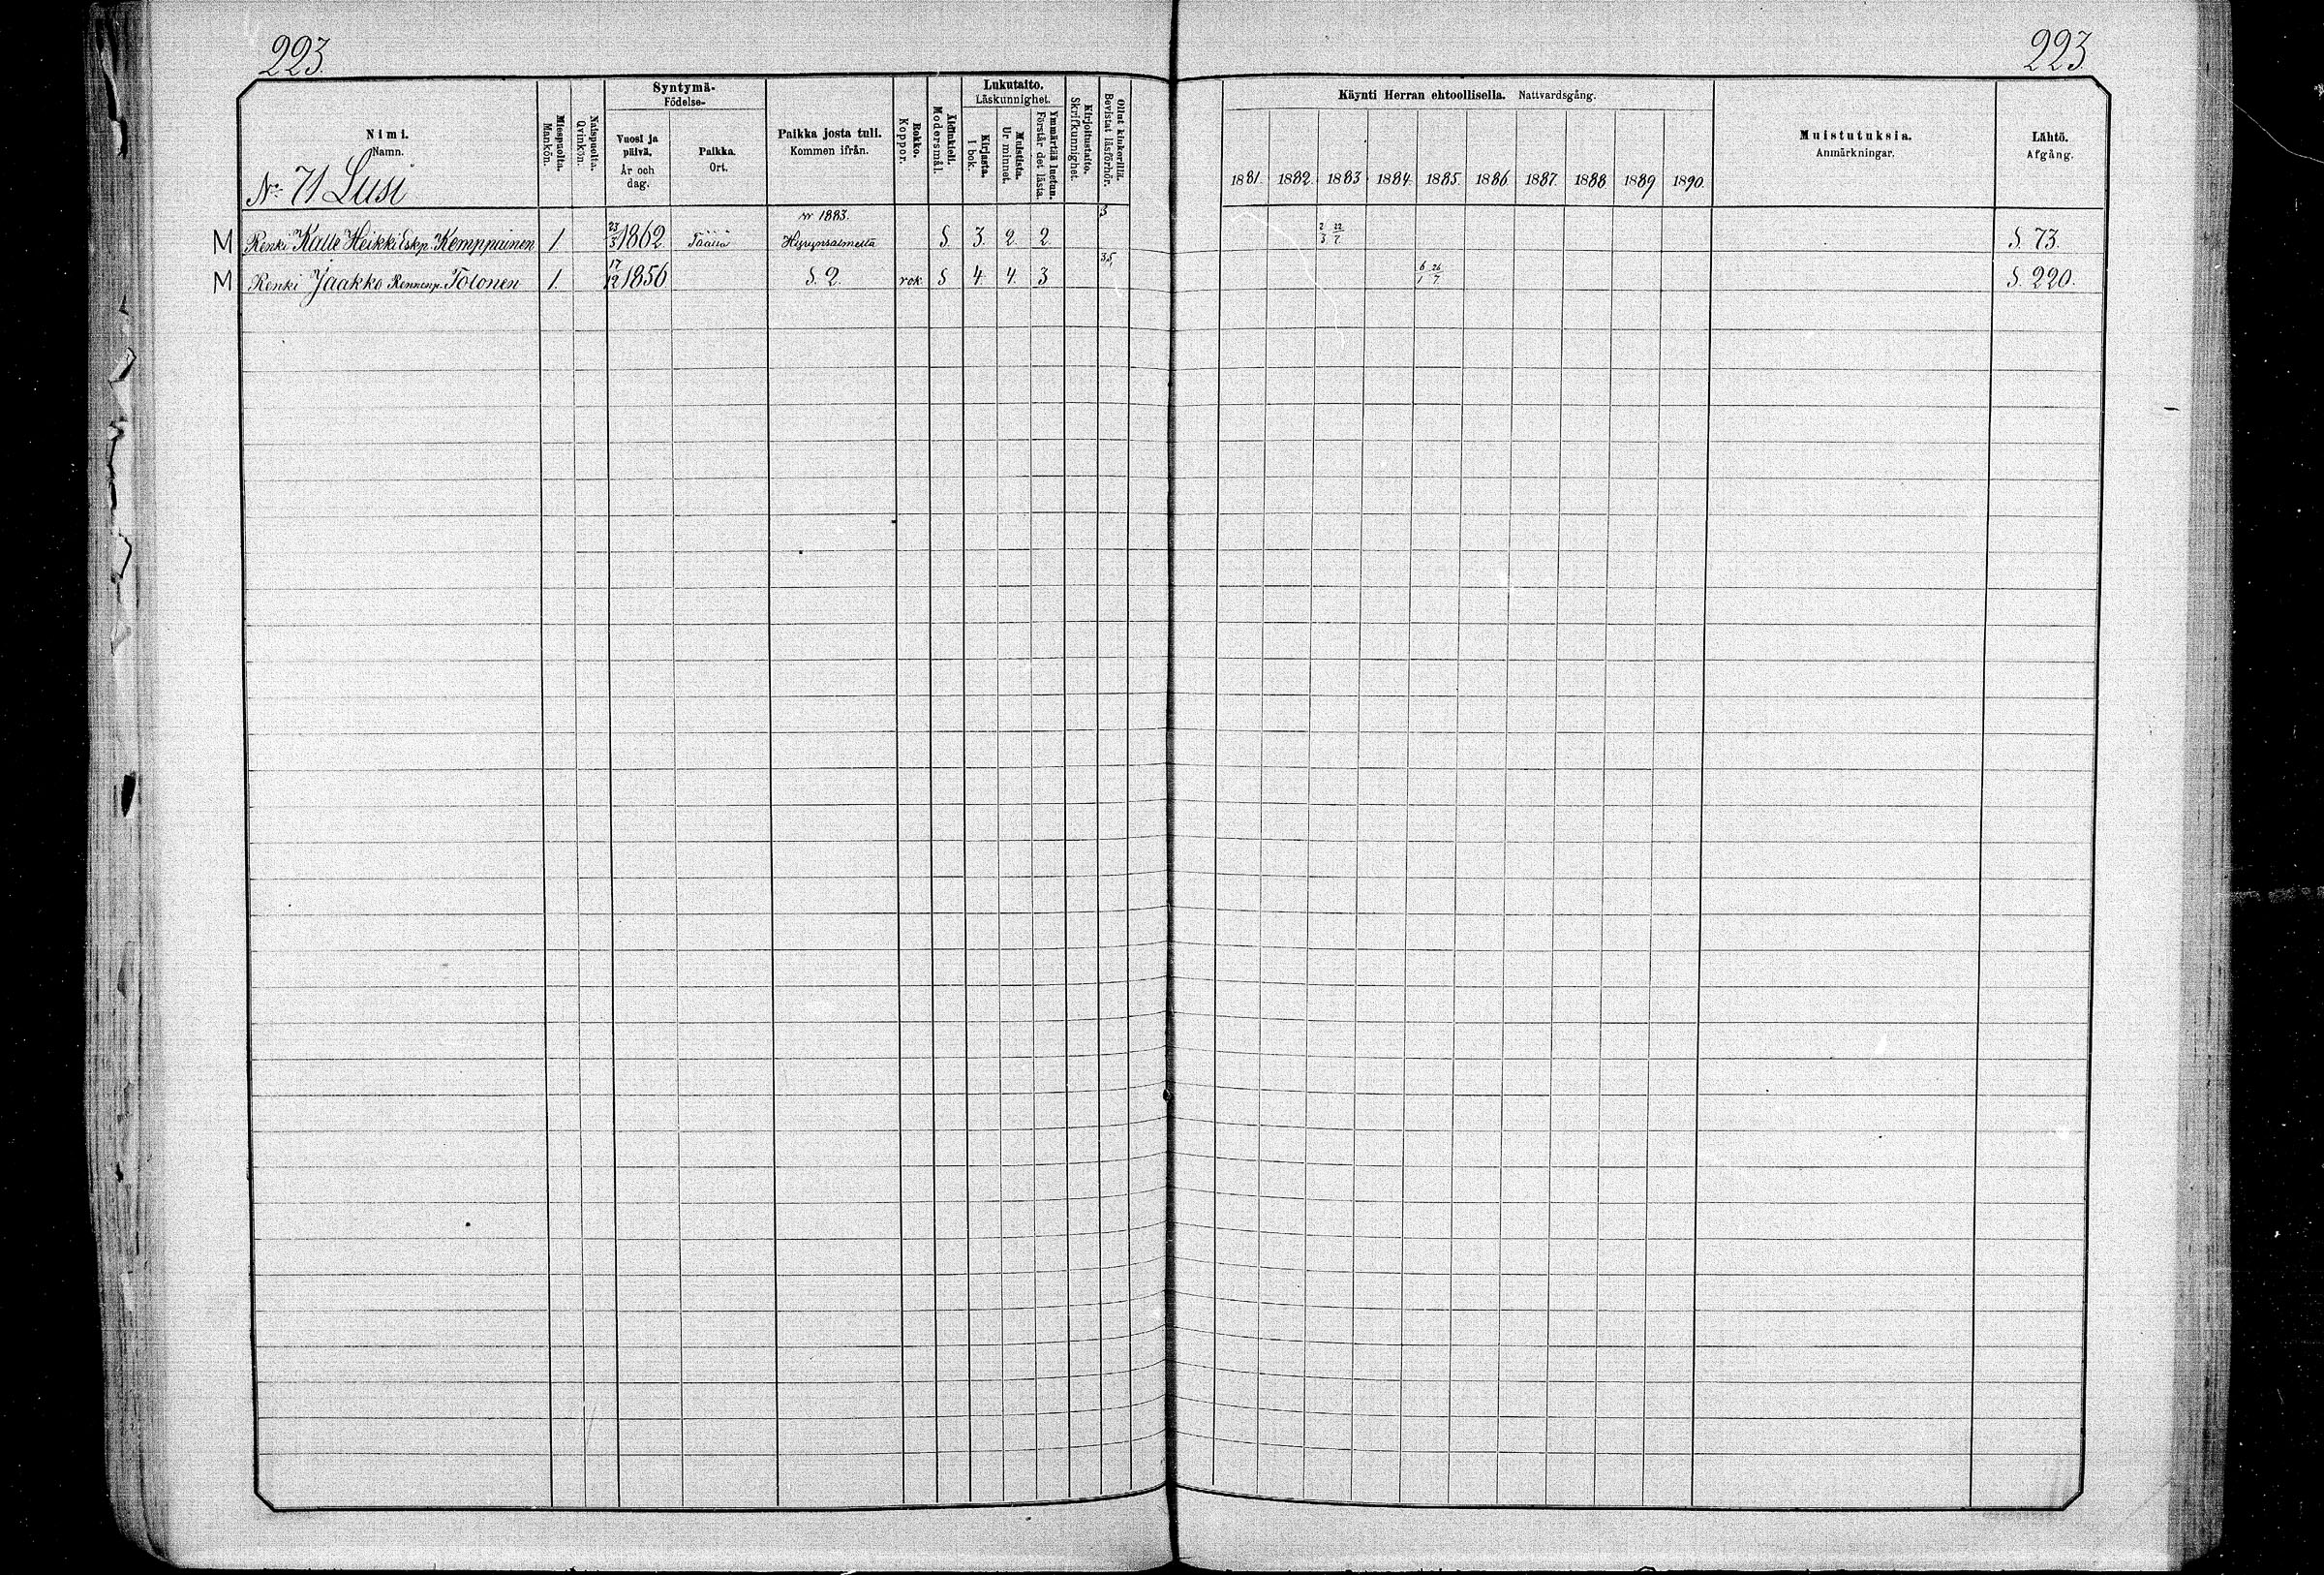 223. 223.
Nimi. Namn.
Miespuolta. Mankön.
Naispuolta. Qvinkön.
Syntymä- Födelse-
Vuosi ja päivä. År och dag.
Paikka. Ort.
Paikka josta tuli. Kommen ifrån.
Rokko. Koppor.
Äidinkieli. Modersmål.
Lukutaito. Läskunnighet.
Kirjasta. I bok.
Muistista. Ur minnet.
Ymmärtää luetun. Förstår det lästa.
Kirjoitustaito. Skrifkunnighet.
Ollut kinkerillä. Bevistat läsförhör.
Käynti Herran ehtoollisella. Nattvardsgång.
1881. 1882. 1883 1884. 1885. 1886 1887. 1888 1889 1890.
Muistutuksia. Anmärkningar.
Lähtö. Afgång.
No 71 Susi
M Renki Kalle Heikki Eskp. Kemppainen 1. 23/3 1862 Täällä v. 1883. Hyrynsalmelta S. 3. 2. 2. 3 2/3 22/7 S. 73.
M Renki Jaakko Rennenp. Tolonen 1. 17/12 1856 S. 2. rok. S 4. 4. 3 35, 6/1 26/7 S. 220.